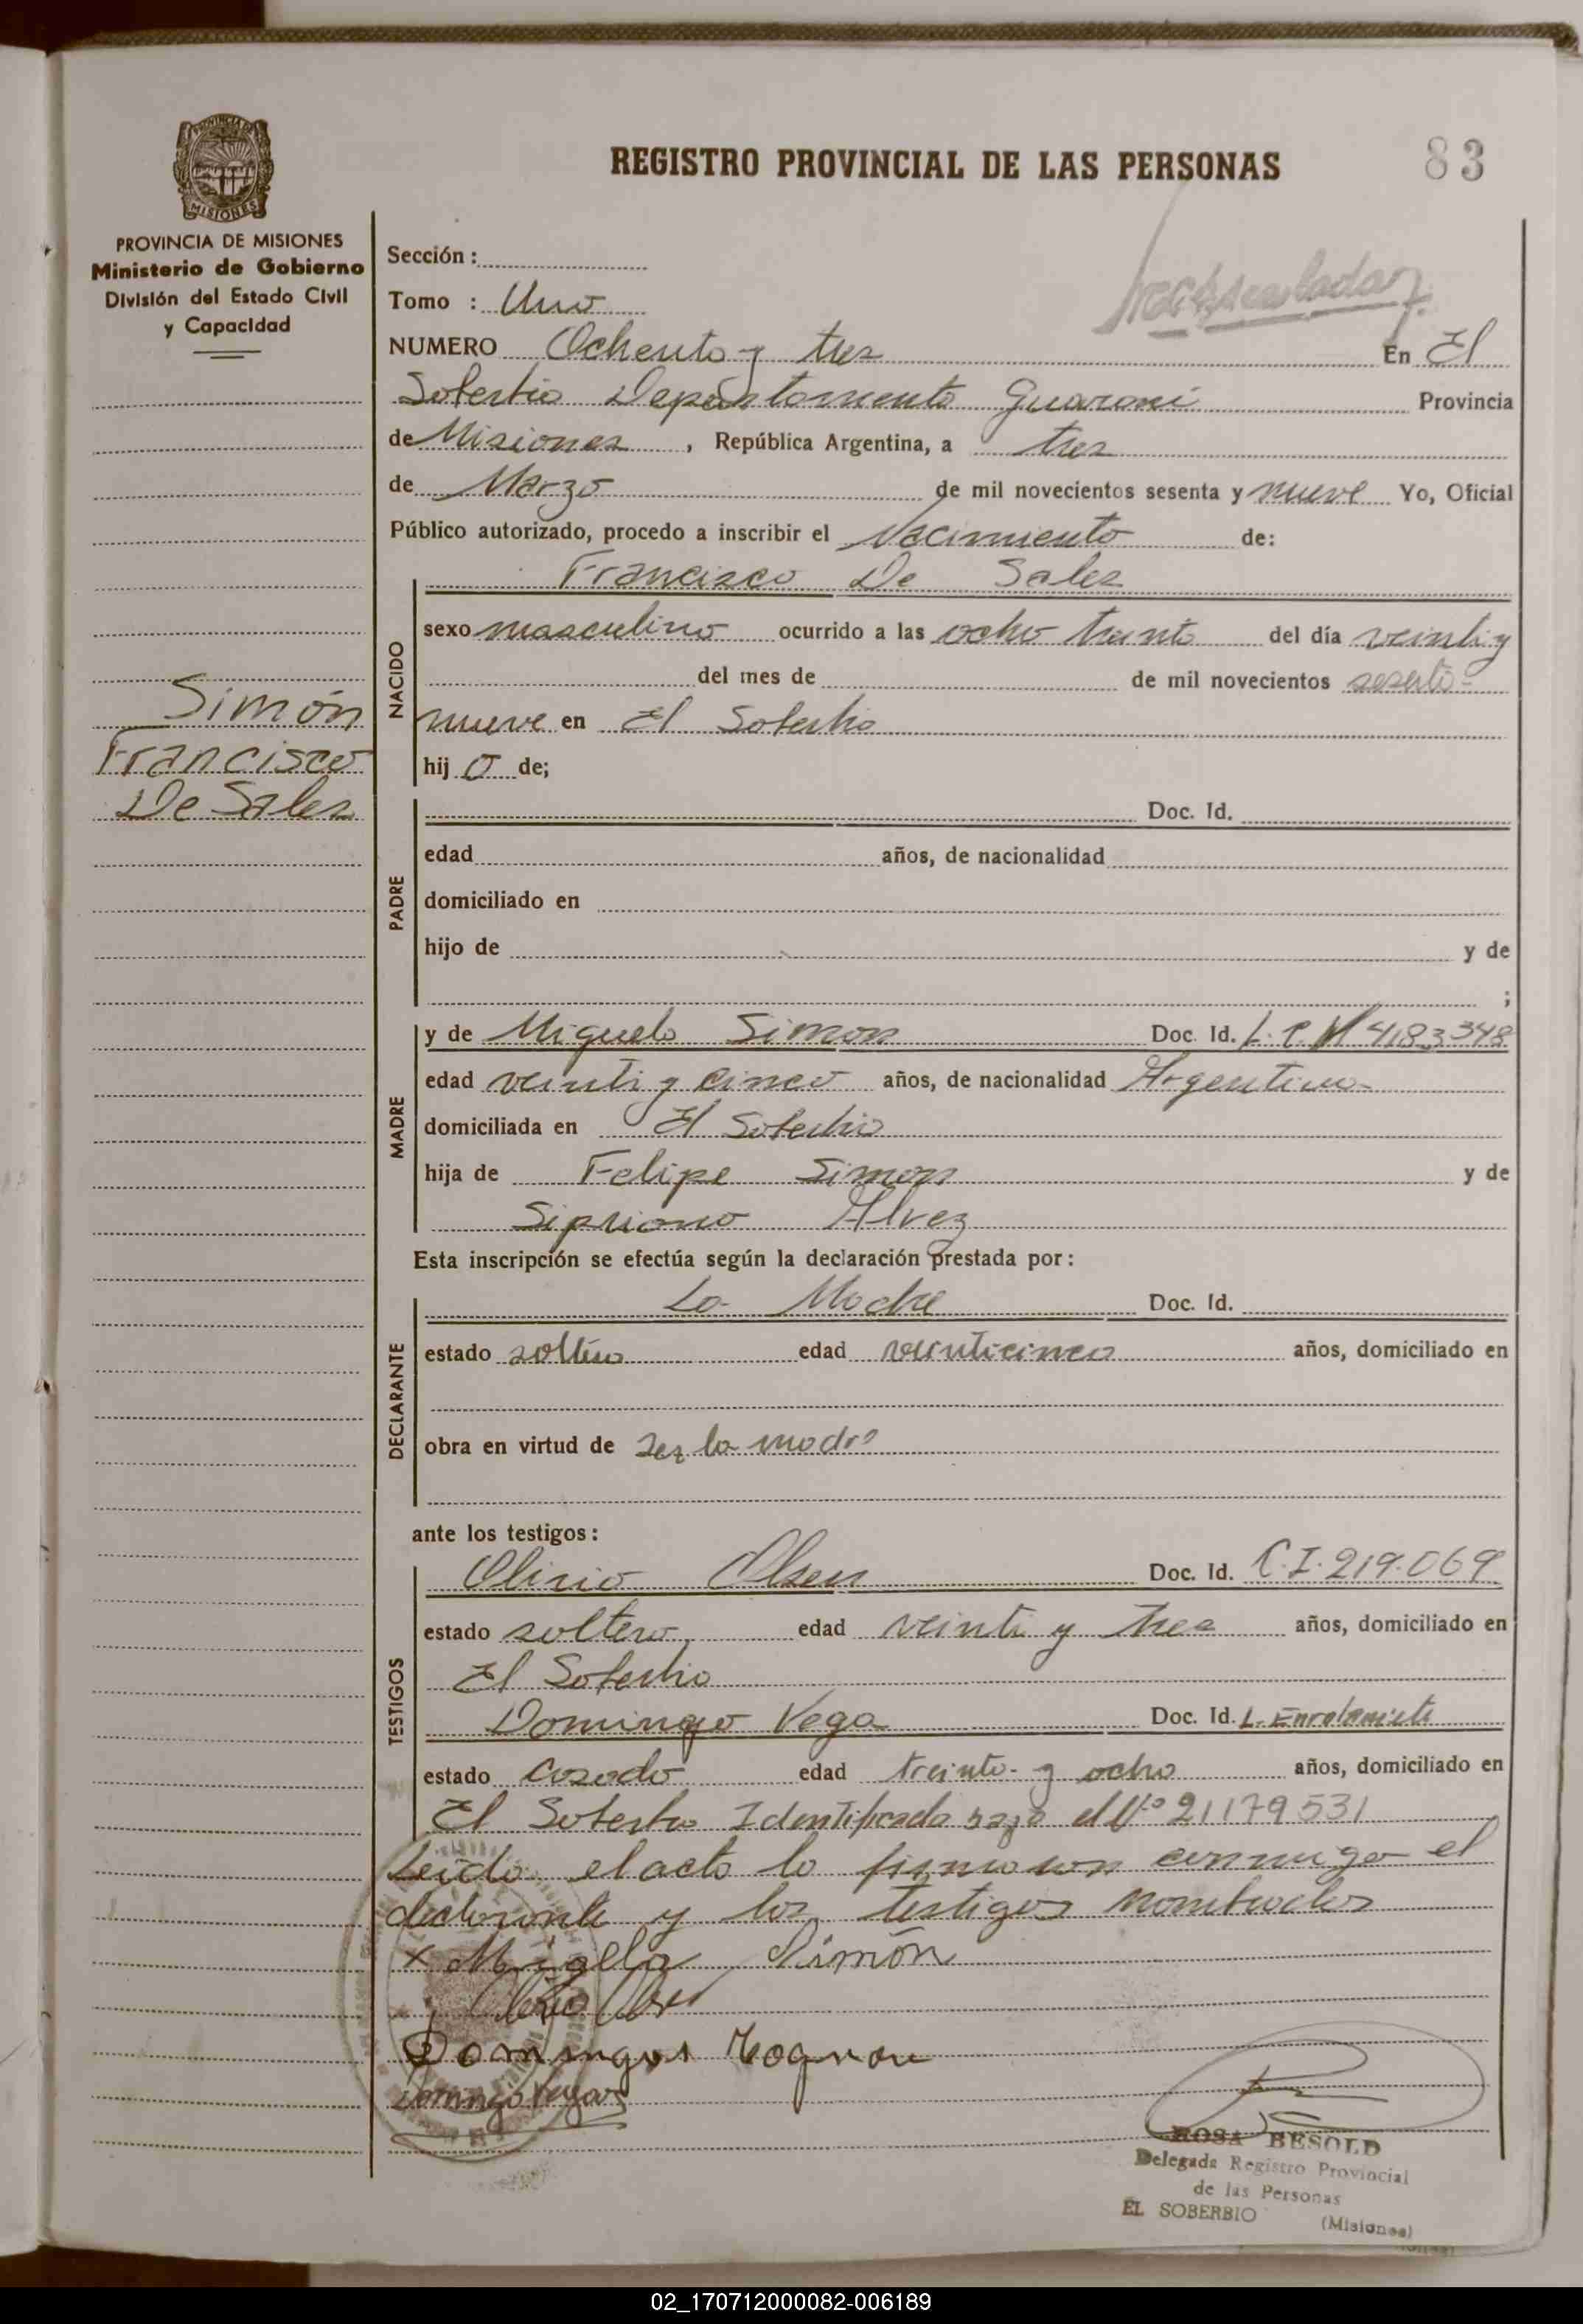 REGISTRO PROVINCIAL DE LAS PERSONAS
83
PROVINCIA DE MISIONES
Ministerio de Gobierno
División del Estado Civil
y Capacidad
Sección :
Tomo : Uno
NUMERO Ochenta y tres En El
Soberbio Departamento Guaraní Provincia
de Misiones , República Argentina, a tres
de Marzo de mil novecientos sesenta y nueve Yo, Oficial
Público autorizado, procedo a inscribir el Nacimiento de:
Francisco De Sales
NACIDO
sexo masculino ocurrido a las ocho treinta del día veinti y
del mes de de mil novecientos sesenta
nueve en El Soberbio
hij o de;
Simón
Francisco
De Sales
PADRE
Doc. Id.
edad años, de nacionalidad
domiciliado en
hijo de y de
;
MADRE
y de Miguela Simon Doc. Id. L.C. Nº 4183348
edad veinti y cinco años, de nacionalidad Argentina
domiciliada en El Soberbio
hija de Felipe Simon y de
Sipriana Alvez
Esta inscripción se efectúa según la declaración prestada por :
DECLARANTE
La Madre Doc. Id.
estado soltera edad veinticinco años, domiciliado en
obra en virtud de ser la madre
ante los testigos :
TESTIGOS
Olirio Olsen Doc. Id. C.I. 219.069
estado soltero edad veinti y tres años, domiciliado en
El Soberbio
Domingo Vega Doc. Id. L. Enrolamiento
estado casado edad treinta y ocho años, domiciliado en
El Soberbio Identificado bajo el Nº 21179531
Leida el acta la firmaron conmigo el
declarante y los testigos nombrados
x Migella Simón
Domingo Vegas
ROSA BESOLD
Delegada Registro Provincial
de las Personas
EL SOBERBIO (Misiones)
02_170712000082-006189